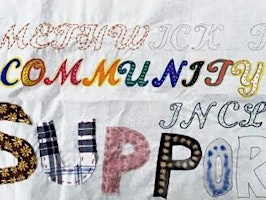 METHWICK
COMMUNITY
INCL
SUPPOR